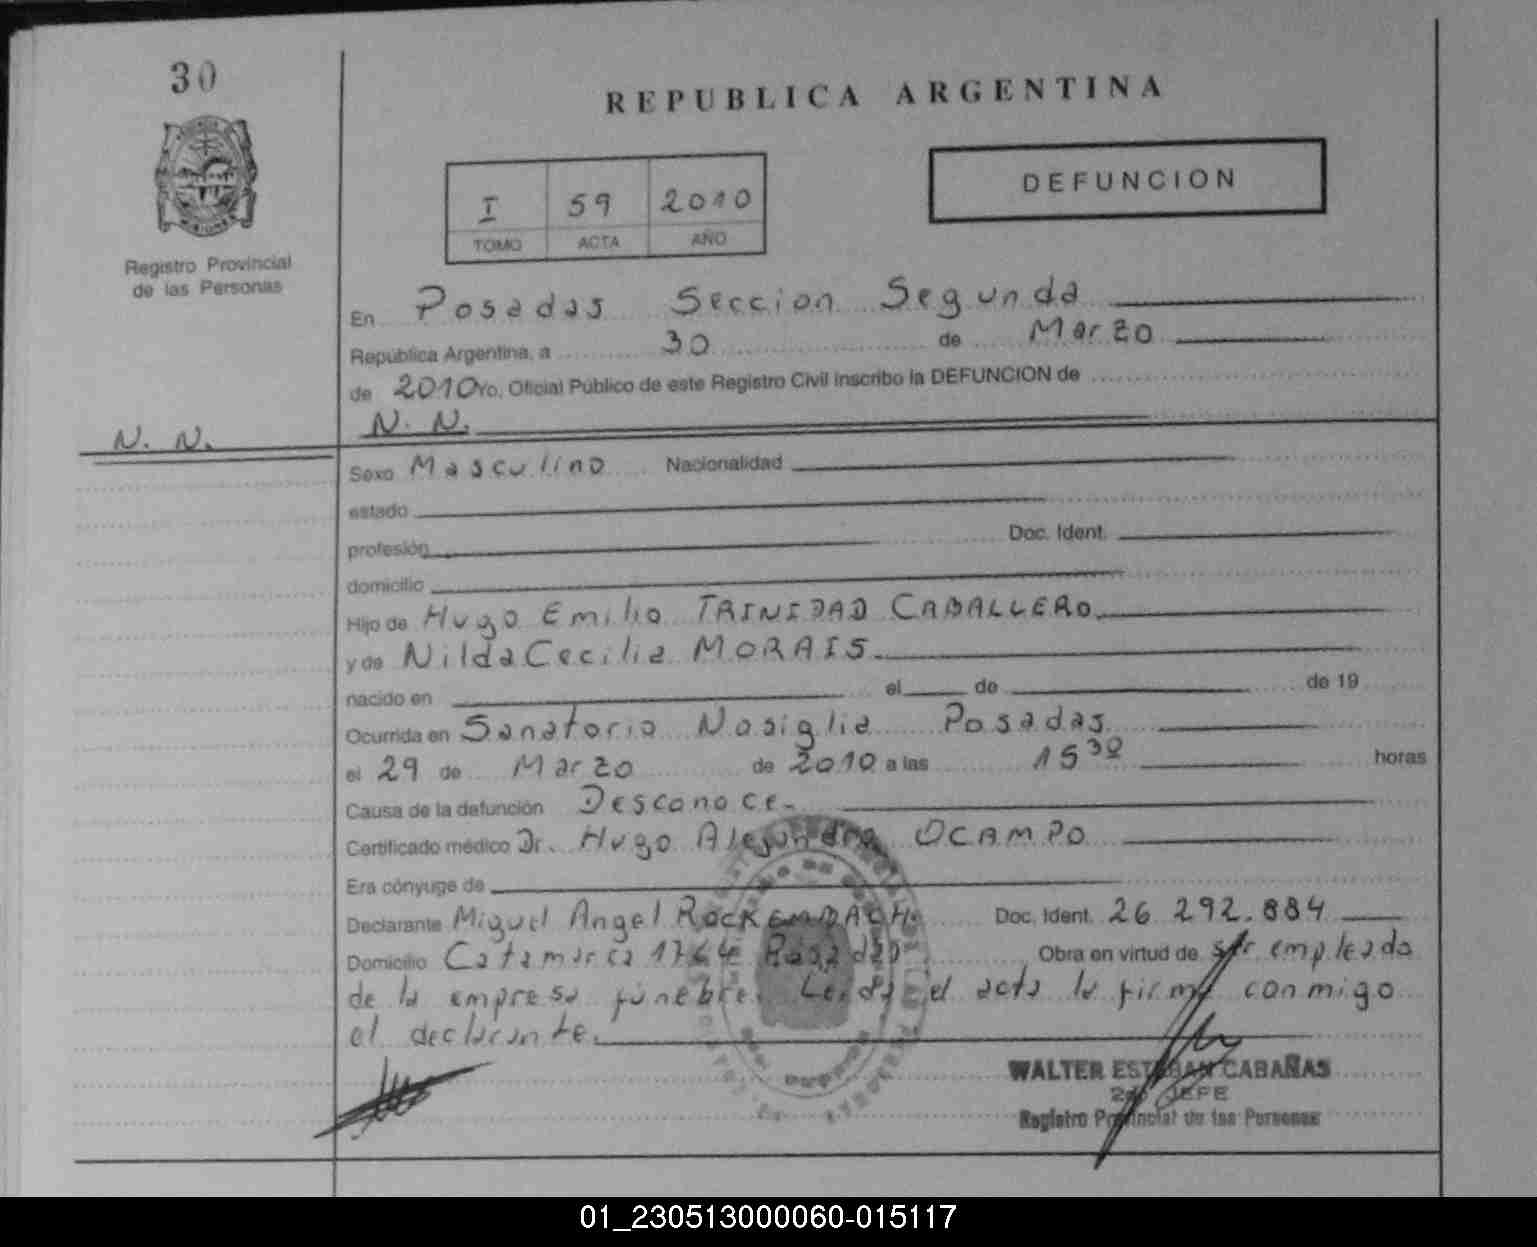 30
REPUBLICA ARGENTINA
I 59 2010
TOMO ACTA AÑO
DEFUNCION
Registro Provincial
de las Personas
En Posadas Seccion Segunda
Republica Argentina, a 30 de Marzo
de 2010 Yo, Oficial Público de este Registro Civil inscribo la DEFUNCION de
N. N.
N. N.
Sexo Masculino Nacionalidad
estado
profesión Doc. Ident.
domicilio
Hijo de Hugo Emilio TRINIDAD CABALLERO
y de Nilda Cecilia MORAIS
nacido en el de de 19
Ocurrida en Sanatorio Nosiglia Posadas
el 29 de Marzo de 2010 a las 15 30 horas
Causa de la defunción Desconoce
Certificado médico Dr. Hugo Alejandro OCAMPO
Era cónyuge de
Declarante Miguel Angel ROCKEMBACH Doc. Ident. 26 292.884
Domicilio Catamarca 1764 Posadas Obra en virtud de ser empleado
de la empresa funebre. Leida el acta la firma conmigo
el declarante.
WALTER ESTEBAN CABAÑAS
2do JEFE
Registro Provincial de las Personas
01_230513000060-015117